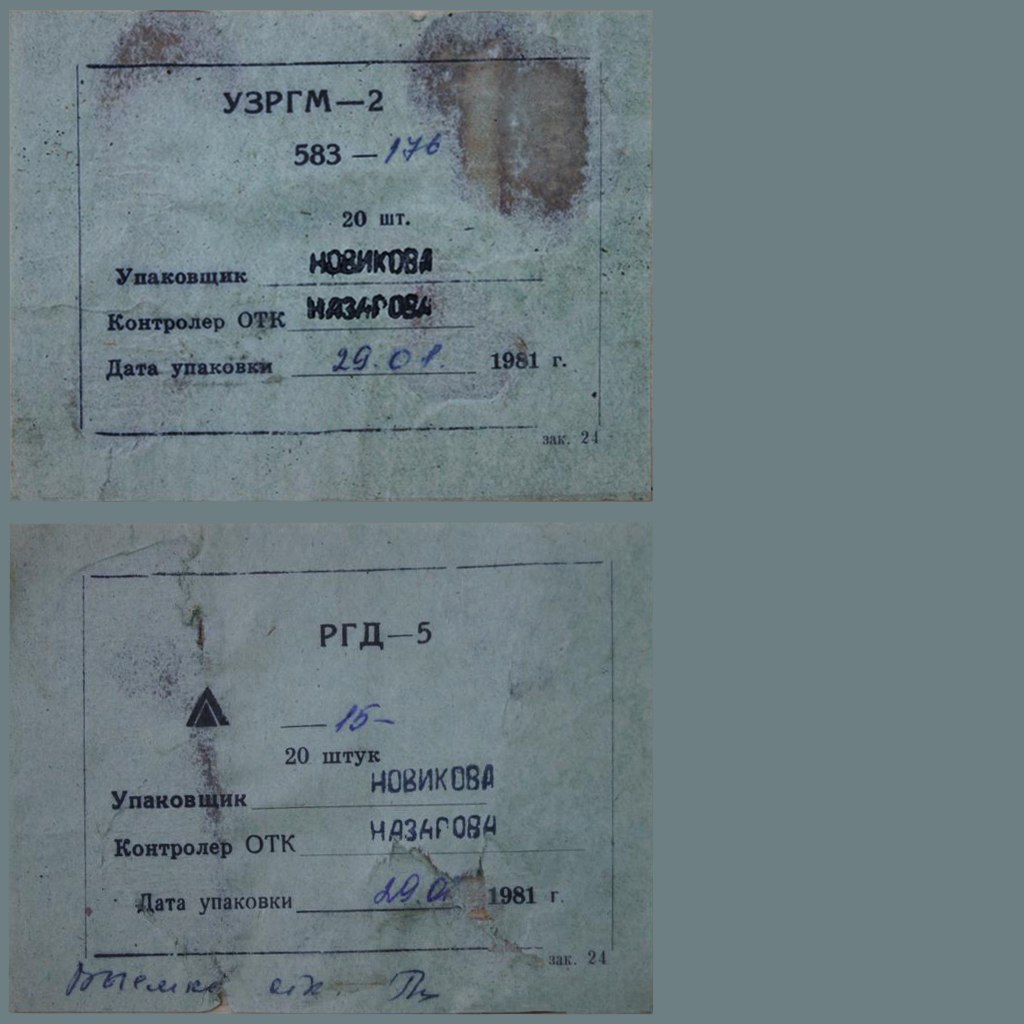 УЗРГМ—2
583 — 176
20 шт.
Упаковщик НОВИКОВА
Контролер ОТК НАЗАРОВА
Дата упаковки 29.01. 1981 г.
зак. 24
РГД—5
— 15 —
20 штук
Упаковщик НОВИКОВА
Контролер ОТК НАЗАРОВА
Дата упаковки 29.0 1981 г.
зак. 24